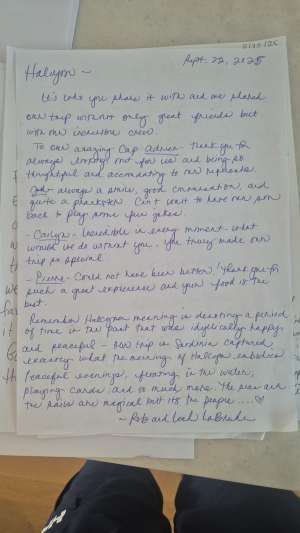 Sept. 22, 2025
Halcyon ~
It's who you share it with and we shared
our trip with not only great friends but
with one incredible crew.
To our amazing Cap Adrien - thank you for
always looking out for us and being so
thoughtful and accommodating to our requests.
- always a smile, good conversation, and
quite a prankster. Can't wait to have our son
back to play some fun jokes.
- Carlyn - Incredible in every moment - what
would we do without you. You truly made our
trip so special.
- Pierre - Could not have been better! Thank you for
such a great experience and your food is the
best.
Remember Halcyon meaning is denoting a period
of time in the past that was idyllically happy
and peaceful - our trip in Sardinia captured
exactly what the meaning of Halcyon embodies
Peaceful evenings, floating in the water,
playing cards and so much more. The seas and
the are magical but it's the people .... ♡
~ Rob and